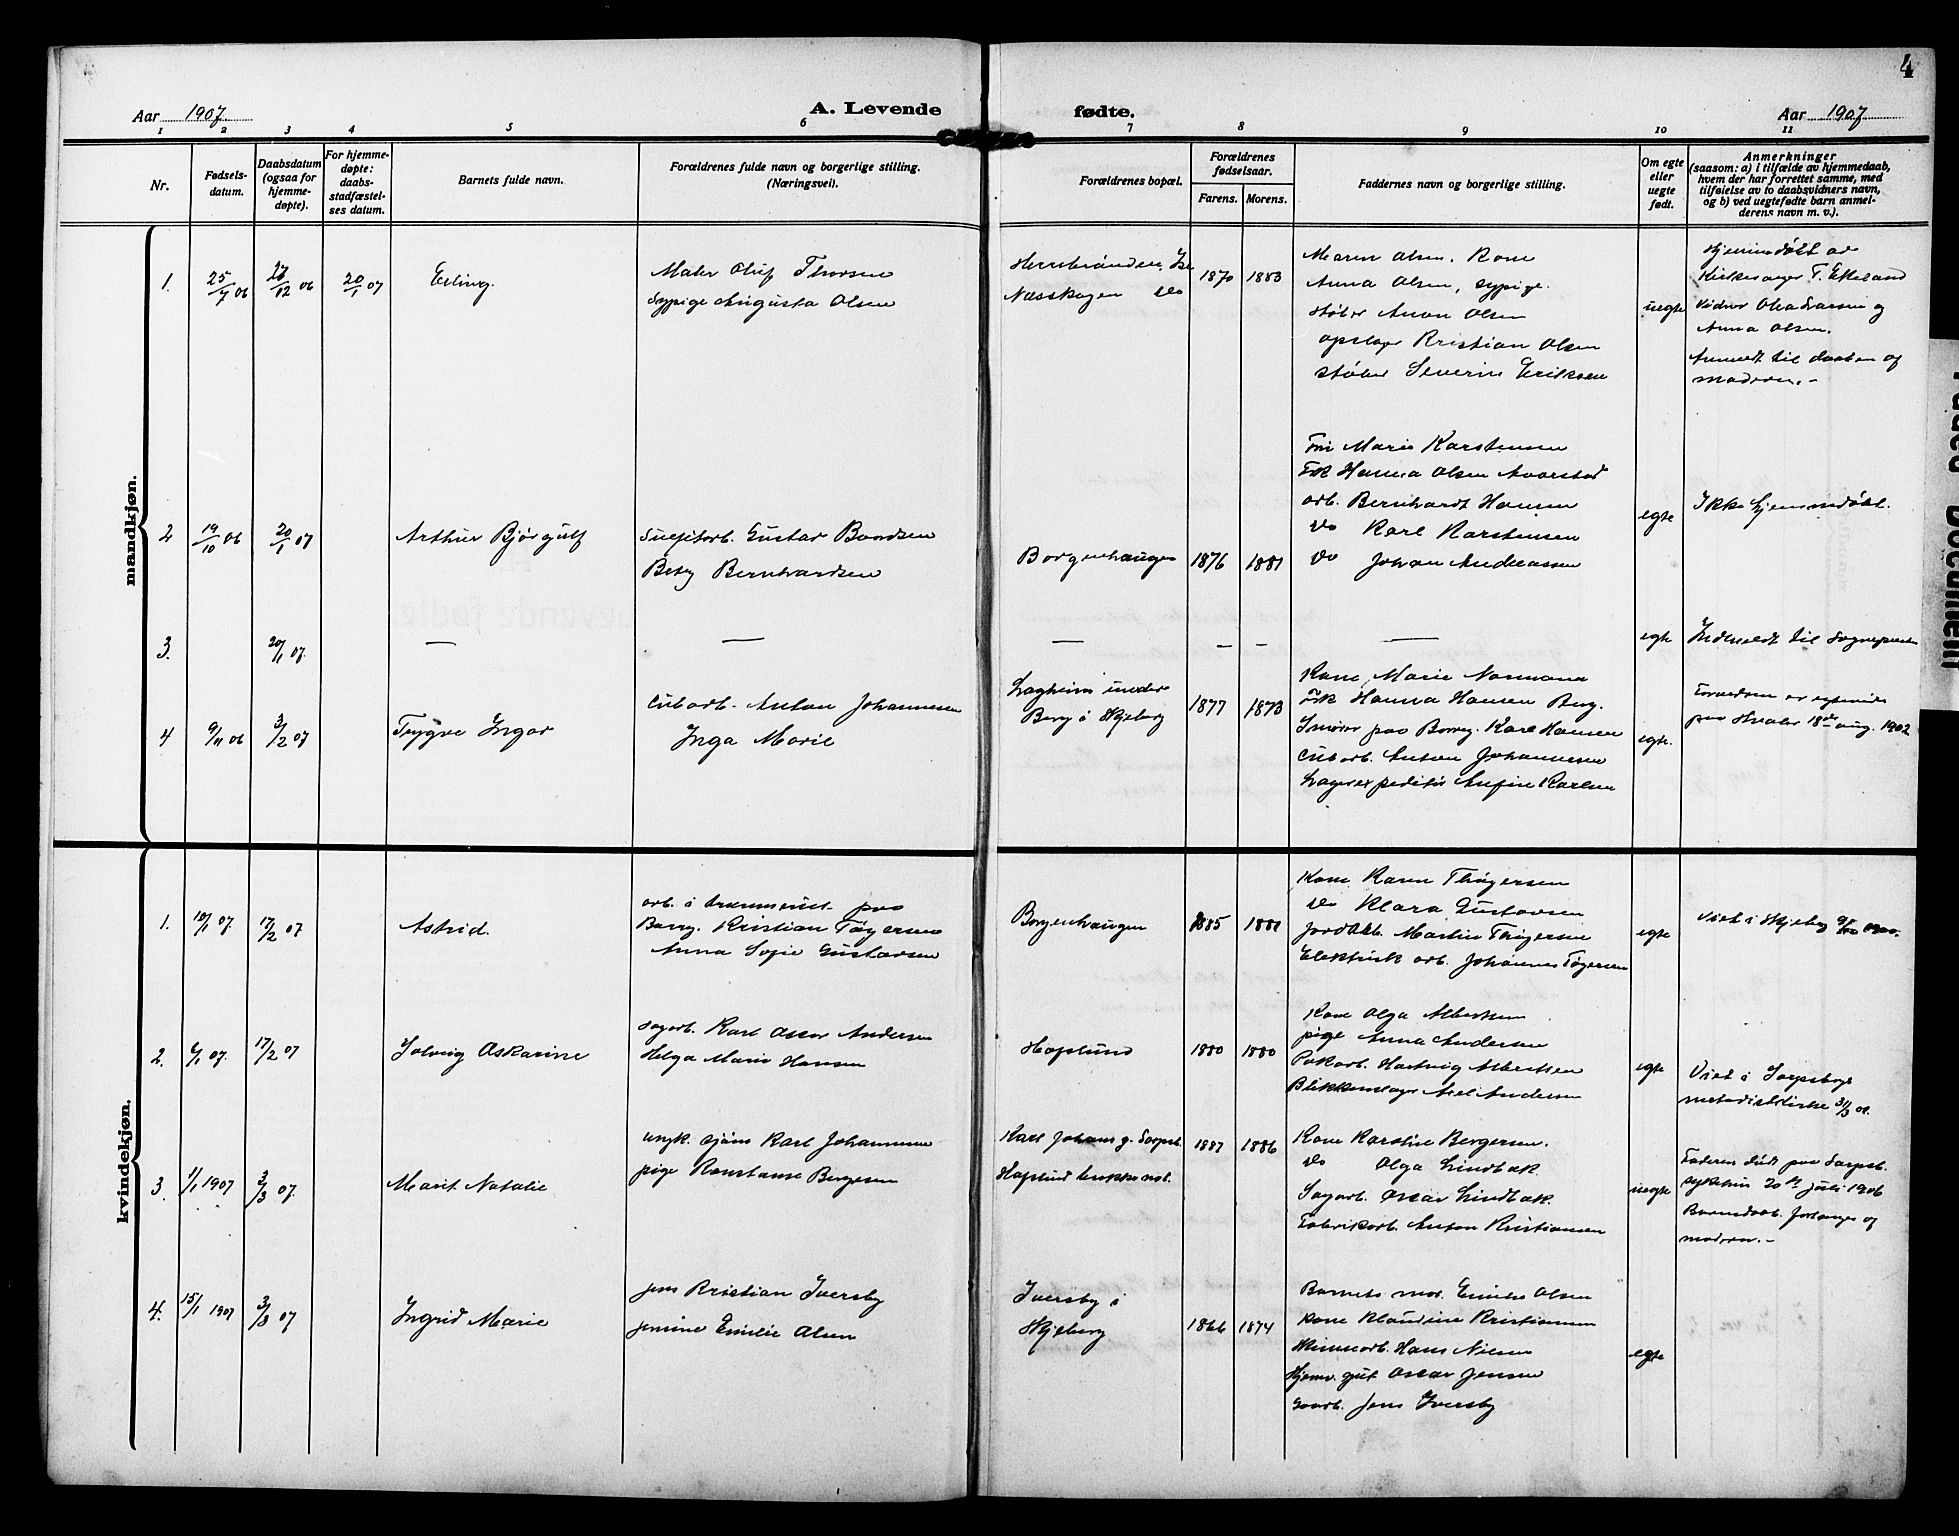 4
Aar 1907
A. Levende
fødte.
Aar 1907
1 2 3 4 5 6 7 8 9 10 11
Nr.
Fødsels-
datum.
Daabsdatum
(ogsaa for
hjemme-
døpte).
For hjemme-
døpte:
daabs-
stadfæstel-
ses datum.
Barnets fulde navn.
Forældrenes fulde navn og borgerlige stilling.
(Næringsvei).
Forældrenes bopæl.
Forældrenes
fødselsaar.
Farens. Morens.
Faddernes navn og borgerlige stilling.
Om egte
eller
uegte
født.
Anmerkninger
(saasom: a) i tilfælde av hjemmedaab,
hvem der har forrettet samme, med
tilføielse av to daabsvidners navn,
og b) ved uegtefødte barn anmel-
derens navn m. v.).
mandkjøn.
1. 25/7 06 27/12 06 20/1 07
Erling.
Maler Oluf Thorsen
Sypige Augusta Olsen
Næsskogen do
1870 1883
Maren Olsen. Kone
Anna Olsen, sypige.
støber Anon Olsen
opslager Kristian Olsen
støber Severin Eriksen
uegte
Hjemmedøbt av
Kirkesanger T. Etteland
Vidner Olea Larsen og
Anna Olsen.
Anmeldt til daaben af
moderen.-
2 19/10 06 20/1 07
Arthur Bjørgulf
Gustav Bordsen
Betsy Bernhardsen
Borgenhaugen
1876 1881
Marie Karstensen
Frk Hanna Olsen Navestad
arb. Bernhardt Hansen
do Karl Karstensen
do Johan Andreassen
egte
Ikke hjemmedøbt.
3. 20/1 07.
— — — – – —
egte
Indmeldt til Sogneprest
4 9/11 06 3/2 07
Trygve Ingar
cub arb. Anton Johannesen
Inga Marie
Lagheim under
Borg i Skjeberg
1877 1873
Kone Marie Normann
Frk Hanna Hansen Berg.
Smører paa Borreg. Karl Hansen
Cub arb. Anton Johannesen
Lagerexpeditør Anfin Karlsen
egte.
Forældrene er egteviede
paa Hvaler 18de aug. 1902
kvindekjøn.
1. 10/1 07. 17/2 07
Astrid.
arb. i tømmeriet paa
Borrg. Kristian Tøgersen
Anna Sofie Gustavsen
Borgenhaugen
1885 1881
Kone Karen Thøgersen
do Klara Gustavsen
jordarb. Martin Thøgersen
Elektrisk arb. Johannes Tøgersen
egte
Viet i Skjeberg
2. 6/1 07. 17/2 07
Solveig Oskarine
Sagarb. Karl Oscar Andersen
Helga Marie Hansen
Hafslund
1880 1880
Kone Olga Albertsen
pige Anna Andersen
Pakarb. Hartvig Albertsen
Blikkenslager Axel Andersen
egte
Viet i Sarpsborgs
metodistkirke 31/3 01.
3. 1/1 1907 3/3 07.
Marit Natalie
ungk. sjøm Karl Johannesen
pige Konstanse Bergesen
Karl Johans g. Sarpsb.
1887 1886
Kone Karoline Bergersen.
do Olga Lindbæk
Sagarb. Oscar Lindbæk.
Fabrikarb. Anton Kristiansen
uegte
Faderen død paa Sarpsb.
sykehus 20de juli 1906
Barnedaab. forlanges og
moderen.-
4. 15/1 1907 3/3 07
Ingrid Marie
Jens Kristian Iversby
Jensine Emilie Olsen
Iversby i
Skjeberg
1866 1874
Barnets mor. Emilie Olsen
Kone Klaudine Kristiansen
Hans Nilsen
Hjemv. gut Oscar Jensen
Gaarb. Jens Iversby
egte